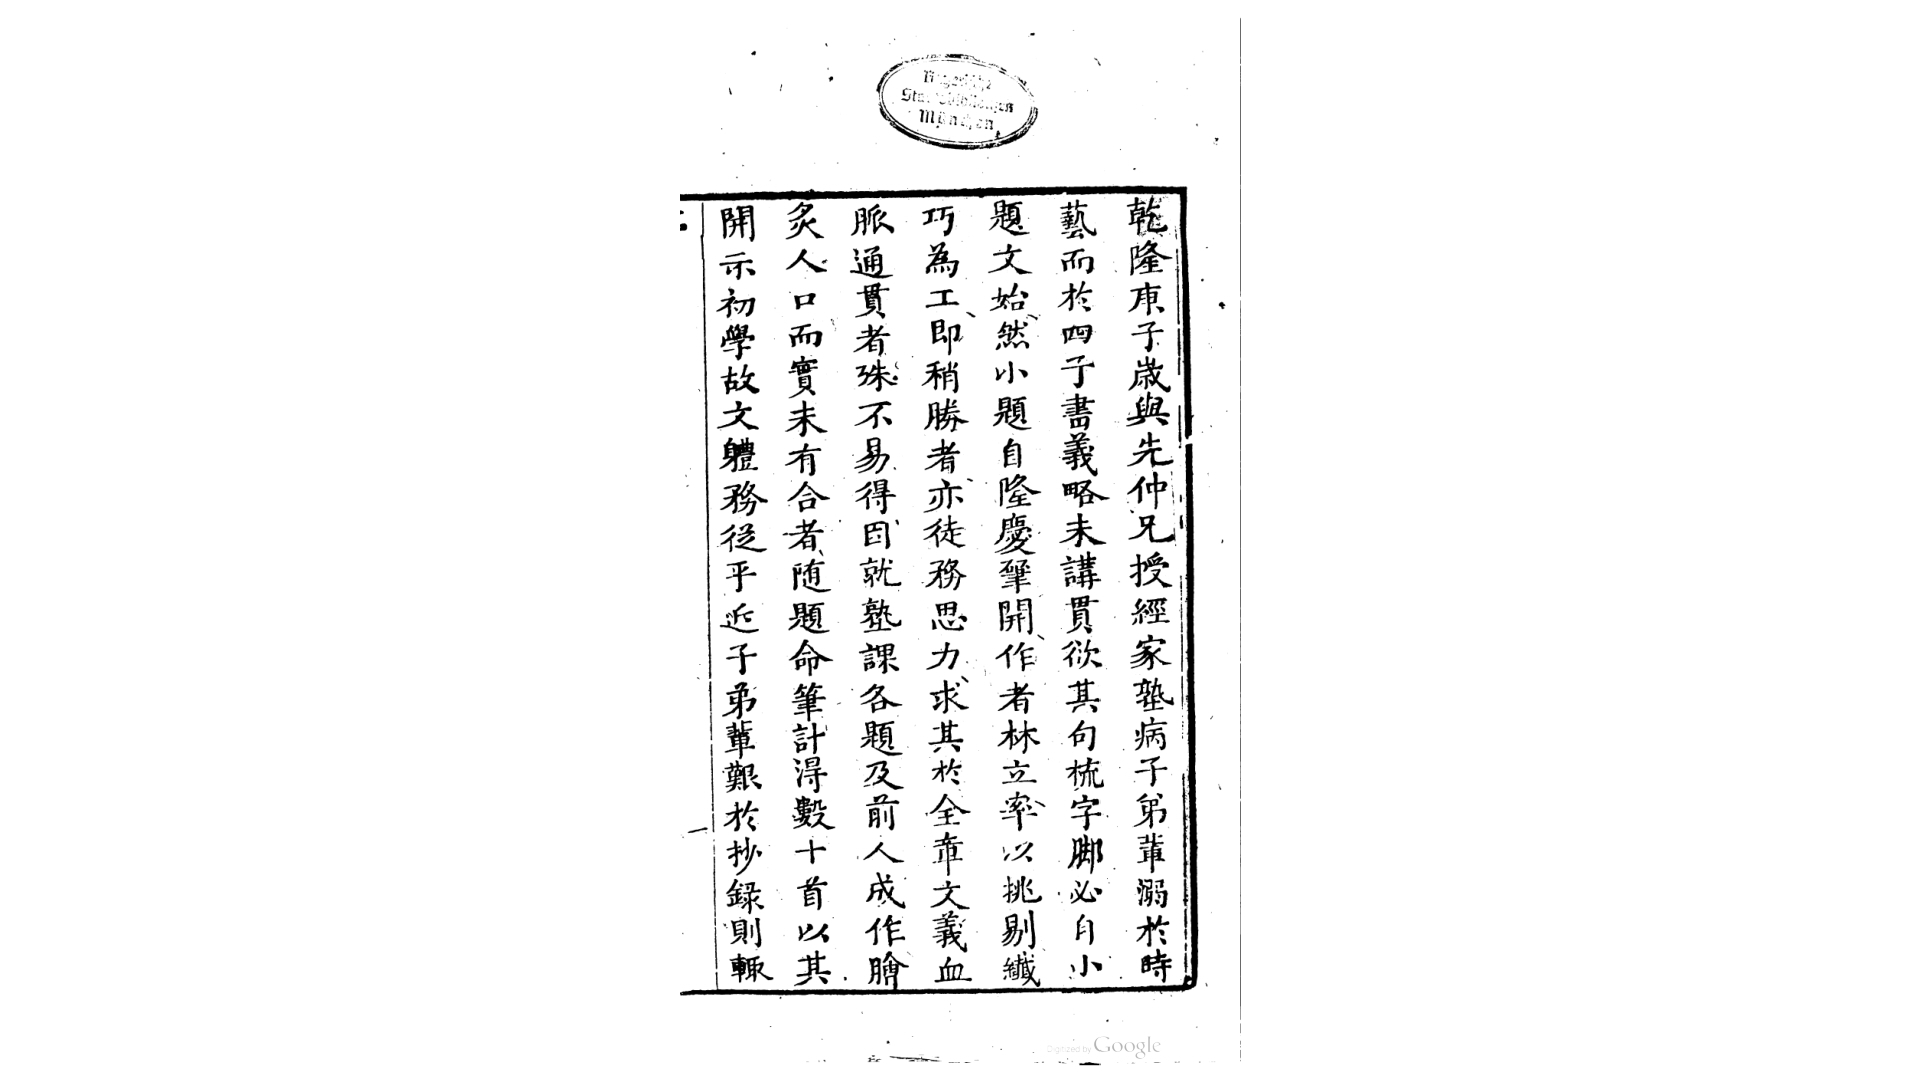 乾隆庚子歳與先仲兄授經家塾病子弟輩溺於時
藝而於四子書義略未講貫欲其句梳字脚必自小
題文始然小題自隆慶肇開作者林立率以挑剔纎
巧為工即稍勝者亦徒務思力求其於全章文義血
脈通貫者殊不易得因就塾課各題及前人成作膾
炙人口而實未有合者随題命筆計淂數十首以其
開示初學故文軆務従乎近子弟輩艱於抄録則輙
München
Digitized by Google